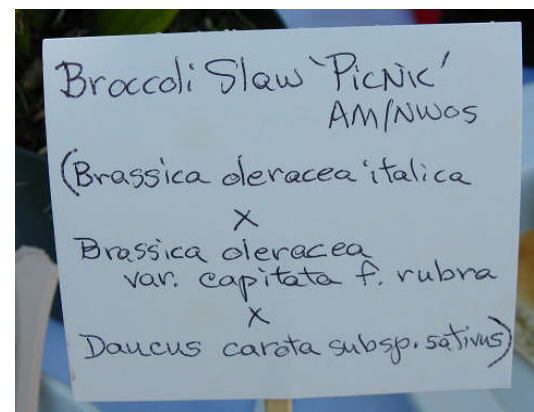 Broccoli Slaw 'PicNic'
AM/NWOS
(Brassica oleracea 'italica
X
Brassica oleracea
var. capitata f. rubra
X
Daucus carota subsp. sativus)